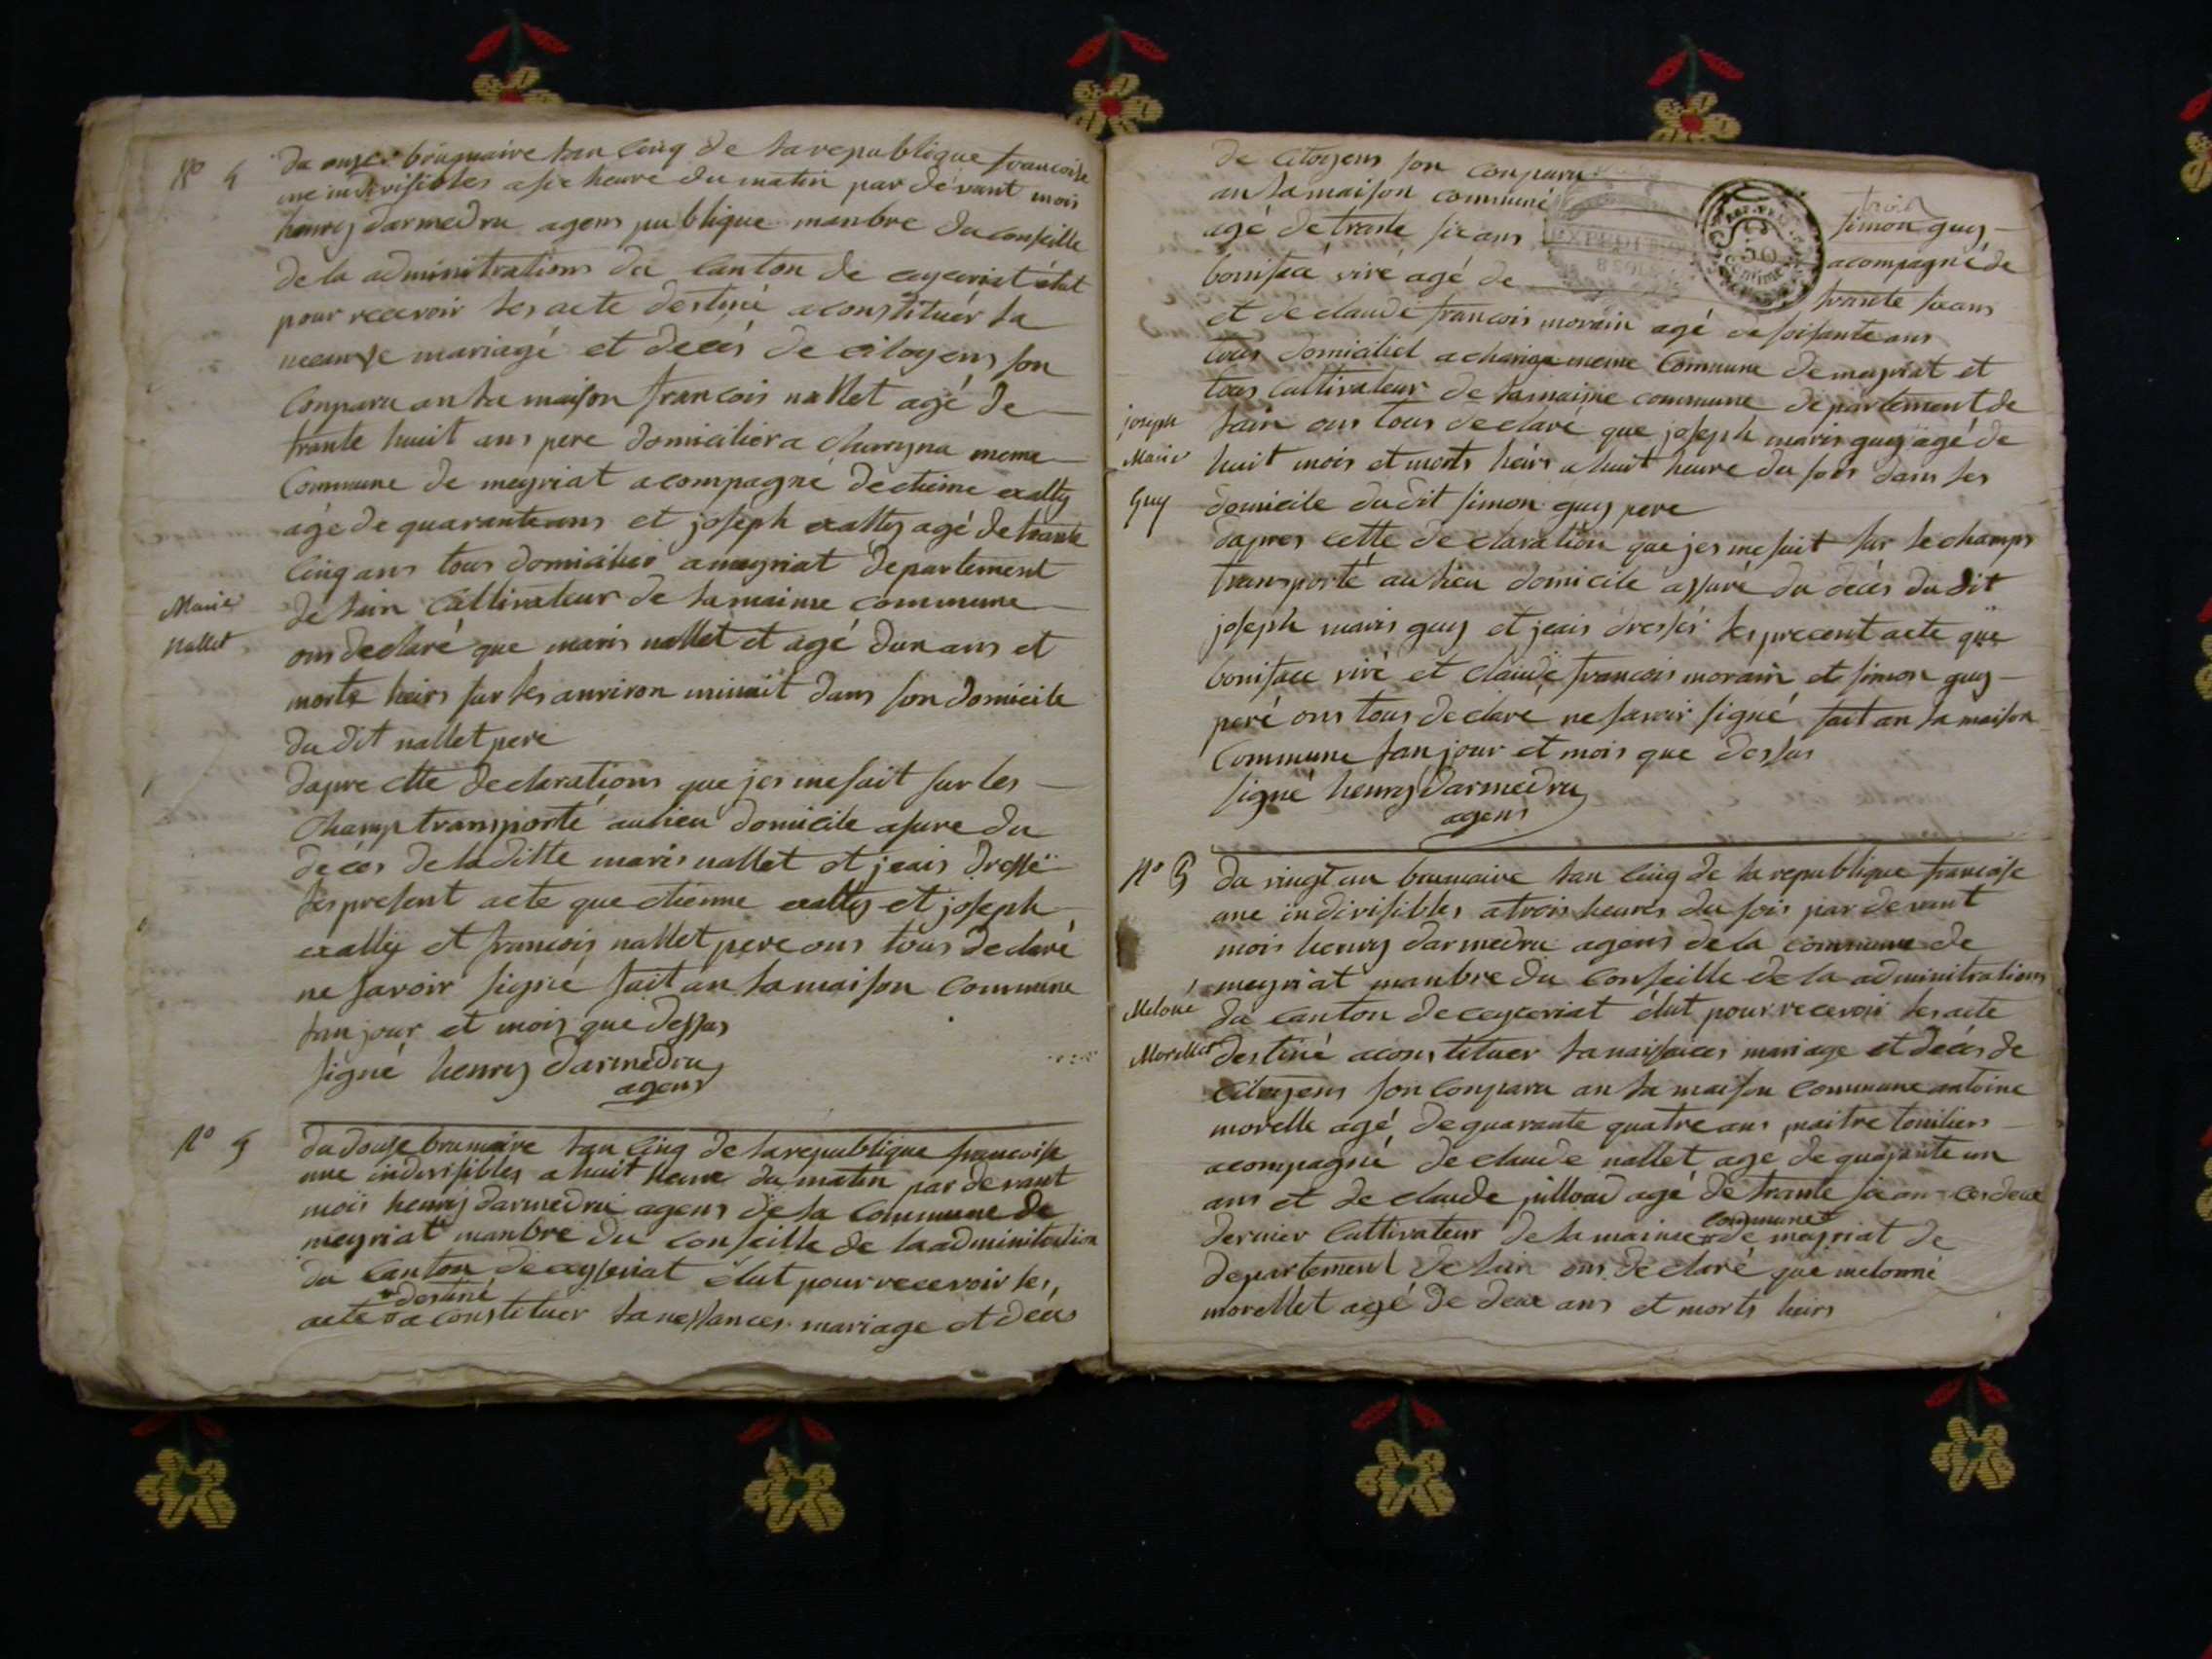 N° 4
du onze brugmaire lan cinq de la republique francoise
une indivisibles a sie heure du matin par devant mois
henry darmedru agens publique manbre du conseille
de la adminitrations du canton de ceyceriat élut
pour recevoir les acte destiné a constituér la
mariagé et decés de citoyens son
Conparu an la maison francois nallet agé de
trante huit ans pere domicilier a meme
Commune de meyriat acompagné detienne exally
agé de quarante ans et joseph exally agé de trante
cinq ans tous domicilier a meyriat departement
de lain Cultivateur de la maime commune
ons declaré que maris nallet et agé dun ans et
morts heirs sur les anviron minuit dans son domicile
du dit nallet pere
Marie
Nallet
dapre cette declarations que jes me suit sur les
Champ transporté au lieu domicile asure du
déces de la ditte maris nallet et jeais dressé
les present acte que etienne exally et joseph
exally et francois nallet pere ons tous declaré
ne savoir signé fait an la maison Commune
lan jour et mois que dessus
signé henry darmedru
agens
N° 5
du douse brumaire lan cinq de la republique francoise
une indivisibles a huit heure du matin par devant
mois henry darmedru agens de la Commune de
meyriat manbre du conseille de la adminitration
du canton de ceyseriat élut pour recevoir les
destiné
acte a constituer la nessances mariage et decés
de citoyens son conparu
an la maison communé simon guy
agé de trante sie ans acompagné de
bonifacé viré agé de trante sie ans
et de claude francois morain agé de soisante ans
tous domiciliet a meme Commune de meyriat et
tous cultivateur de la maime commune departement de
lain ons tous declaré que joseph maris guy agé de
huit mois et morts heirs a huit heure du soir dans les
domicile du dit simon guy pere
joseph
Marie
Guy
dapres cette declaration que jes me suit sur le champs
transporté au lieu domicile assuré du décés du dit
joseph maris guy et jeais dressés les precent acte que
boniface viré et claude francois morain et simon guy
peré ons tous declaré ne savoir signé fait an la maison
Commune lan jour et mois que dessus
signé henry darmedru
agens
N° 6
du vingt un brumaire lan cinq de la republique francoise
une indivisibles a trois heures du soir par devant
mois henry darmedru agens de la commune de
meyriat manbre du conseille de la adminitrations
du canton de ceyceriat élut pour recevoir les acte
destiné a constituer la naissaices mariage et décés de
citoyens son conparu an la maison commune antoine
morelle agé de quarante quatre ans maitre toniliers
acompagné de claude nallet agé de quarante un
ans et de claude pilloud agé de trante sie ans ces deux
commune
dernier Cultivateur de la maime de meyriat de
departement de lain ons declaré que melonné
morellet agé de deux ans et morts heirs
Melone
Morellet
50